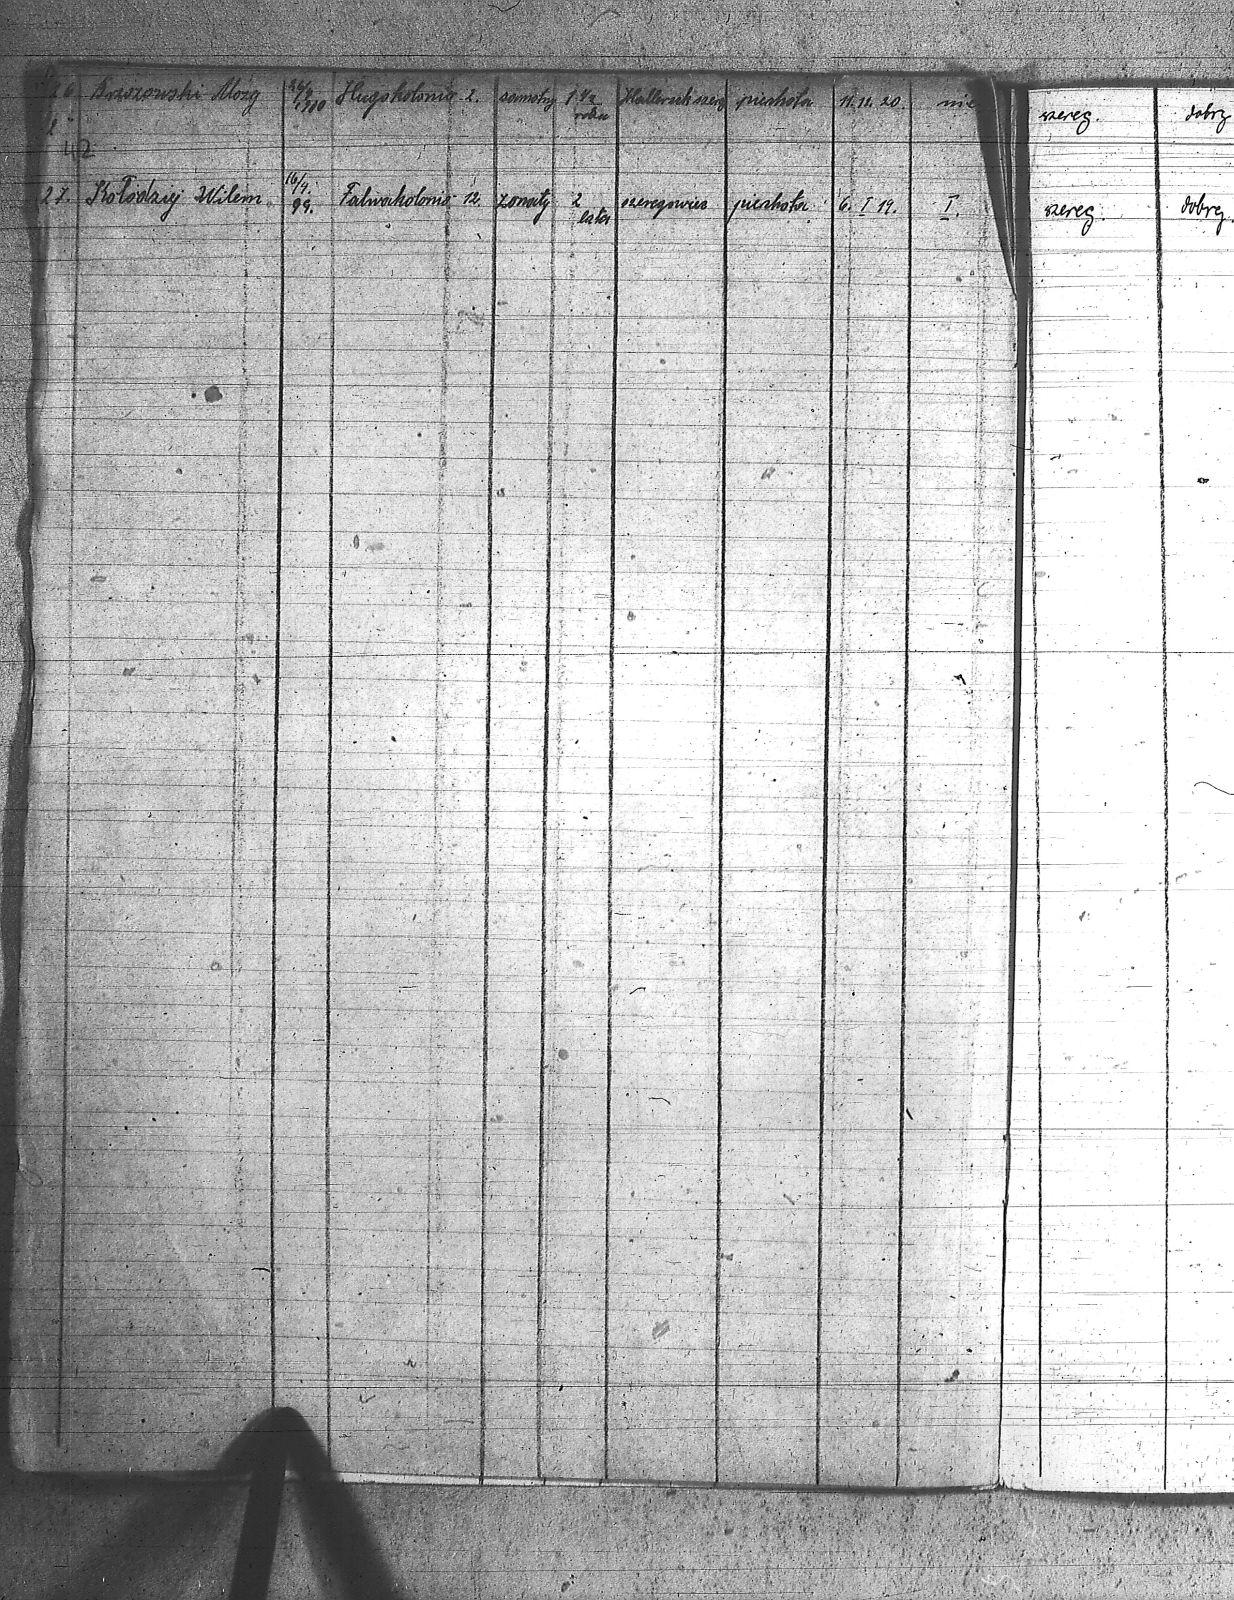 26 Brzozowski Alozy 1910 Hugokolonia 2. samotny 1 1/2 roku Hallerczyk szereg piechota 11.12.20. nie szereg. dobry
2
42
27. Kołodziej Wilem 16/4. 99. Falwakolonia 12. żonaty 2 lata szeregowiec piechota 6. I 19. I. szereg. dobry.